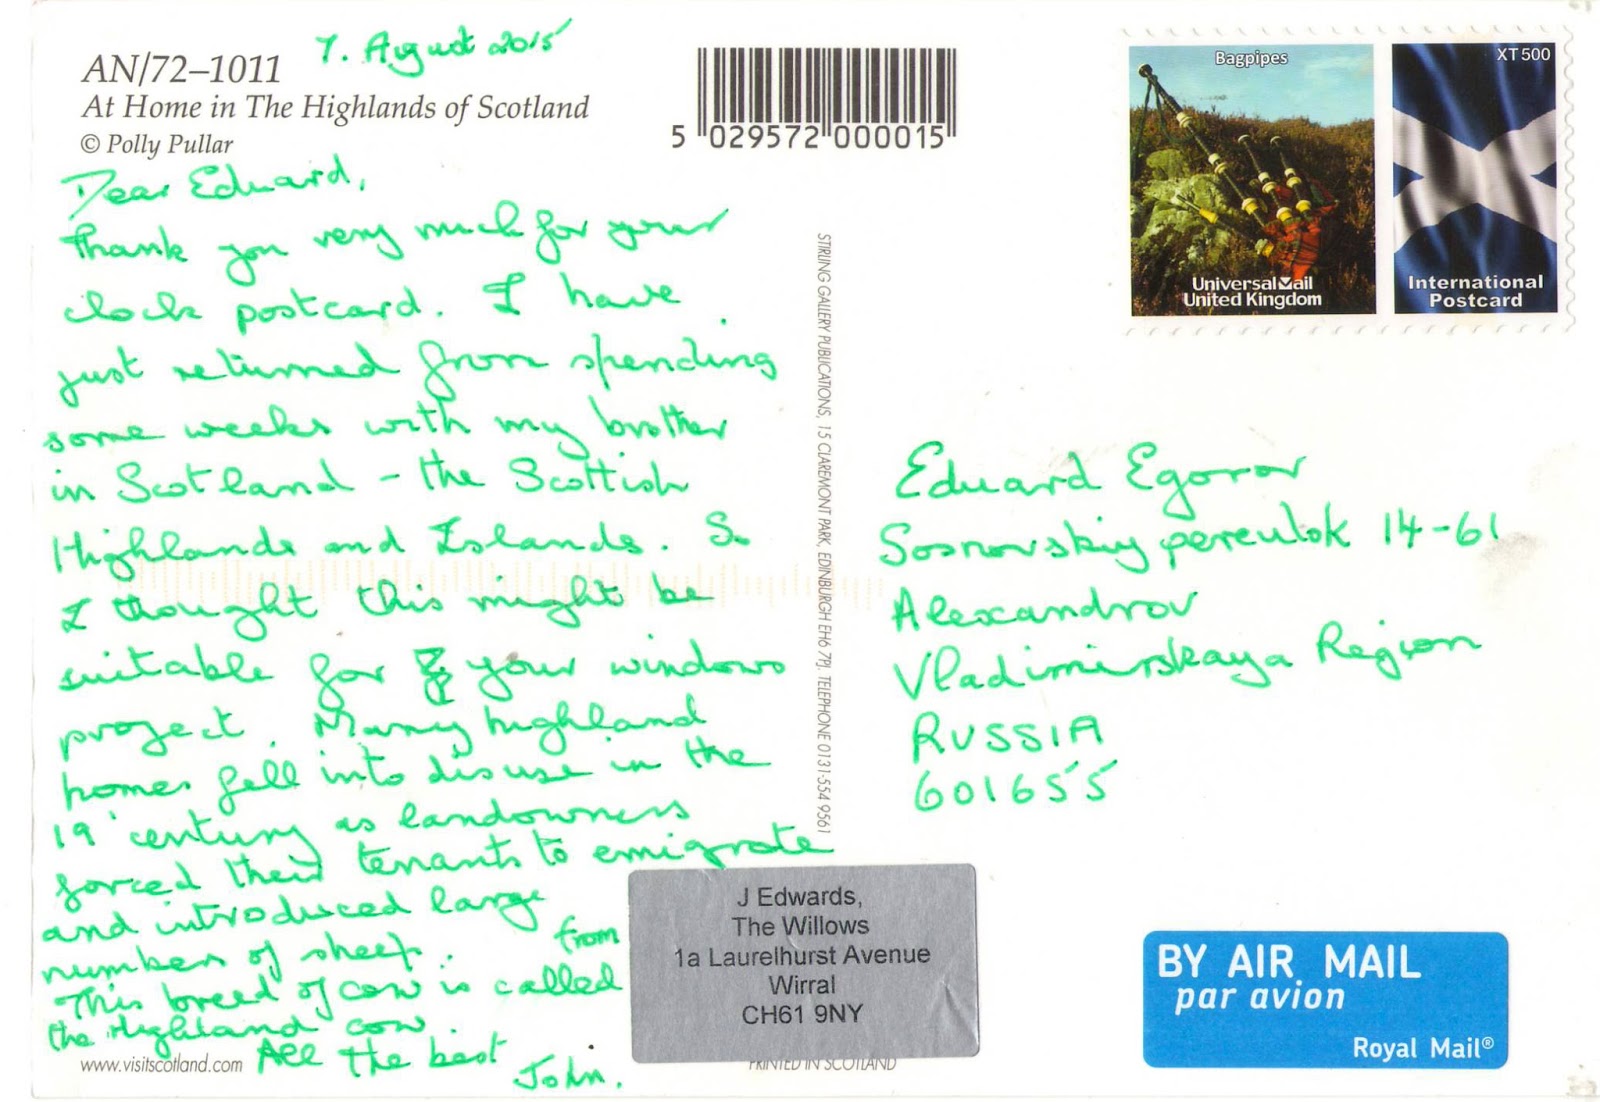 7. August 2015
AN/72–1011
At Home in The Highlands of Scotland
© Polly Pullar
Dear Eduard,
Thank you very much for your
clock postcard. I have
just returned from spending
some weeks with my brother
in Scotland - the Scottish
Highlands and Islands. So
I thought this might be
suitable for your windows
project. Many highland
homes fell into disuse in the
19 century as landowners
forced their tenants to emigrate
and introduced large
numbers of sheep.
This breed of cow is called
the Highland cow.
All the best
from
John.
www.visitscotland.com
5 029572 000015
STIRLING GALLERY PUBLICATIONS, 15 CLAREMONT PARK, EDINBURGH EH6 7PJ. TELEPHONE 0131-554 9561
Bagpipes
UniversalMail
United Kingdom
XT500
International
Postcard
Eduard Egorov
Sosnovskiy pereulok 14-61
Alexandrov
Vladimirskaya Region
RUSSIA
601655
J Edwards,
The Willows
1a Laurelhurst Avenue
Wirral
CH61 9NY
PRINTED IN SCOTLAND
BY AIR MAIL
par avion
Royal Mail®